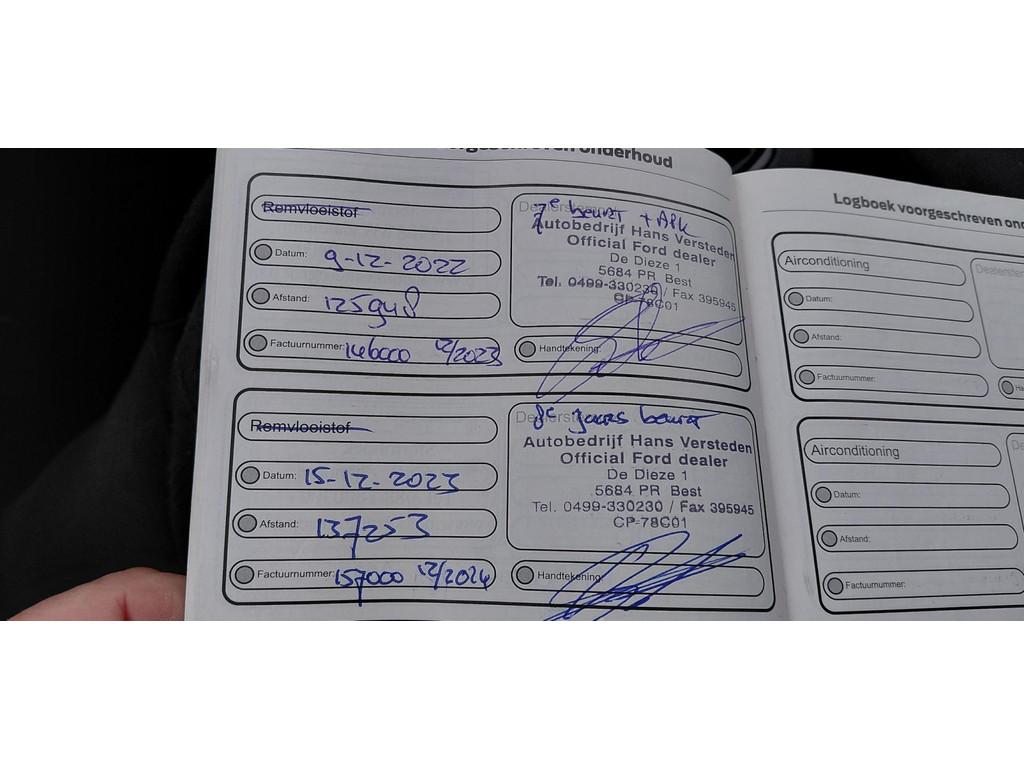 voorgeschreven onderhoud
Remvloeistof
Datum: 9-12-2022
Afstand: 125948
Factuurnummer: 146000 12/2023
Dealerstempel
7e beurt + APK
Autobedrijf Hans Versteden
Official Ford dealer
De Dieze 1
5684 PR Best
Tel. 0499-330230 / Fax 395945
CP-78C01
Handtekening:
Remvloeistof
Datum: 15-12-2023
Afstand: 137253
Factuurnummer: 157000 12/2024
8e jaars beurt
Autobedrijf Hans Versteden
Official Ford dealer
De Dieze 1
5684 PR Best
Tel. 0499-330230 / Fax 395945
CP-78C01
Handtekening:
Logboek voorgeschreven ond
Airconditioning
Datum:
Afstand:
Factuurnummer:
Dealerstem
Ha
Airconditioning
Datum:
Afstand:
Factuurnummer:
De